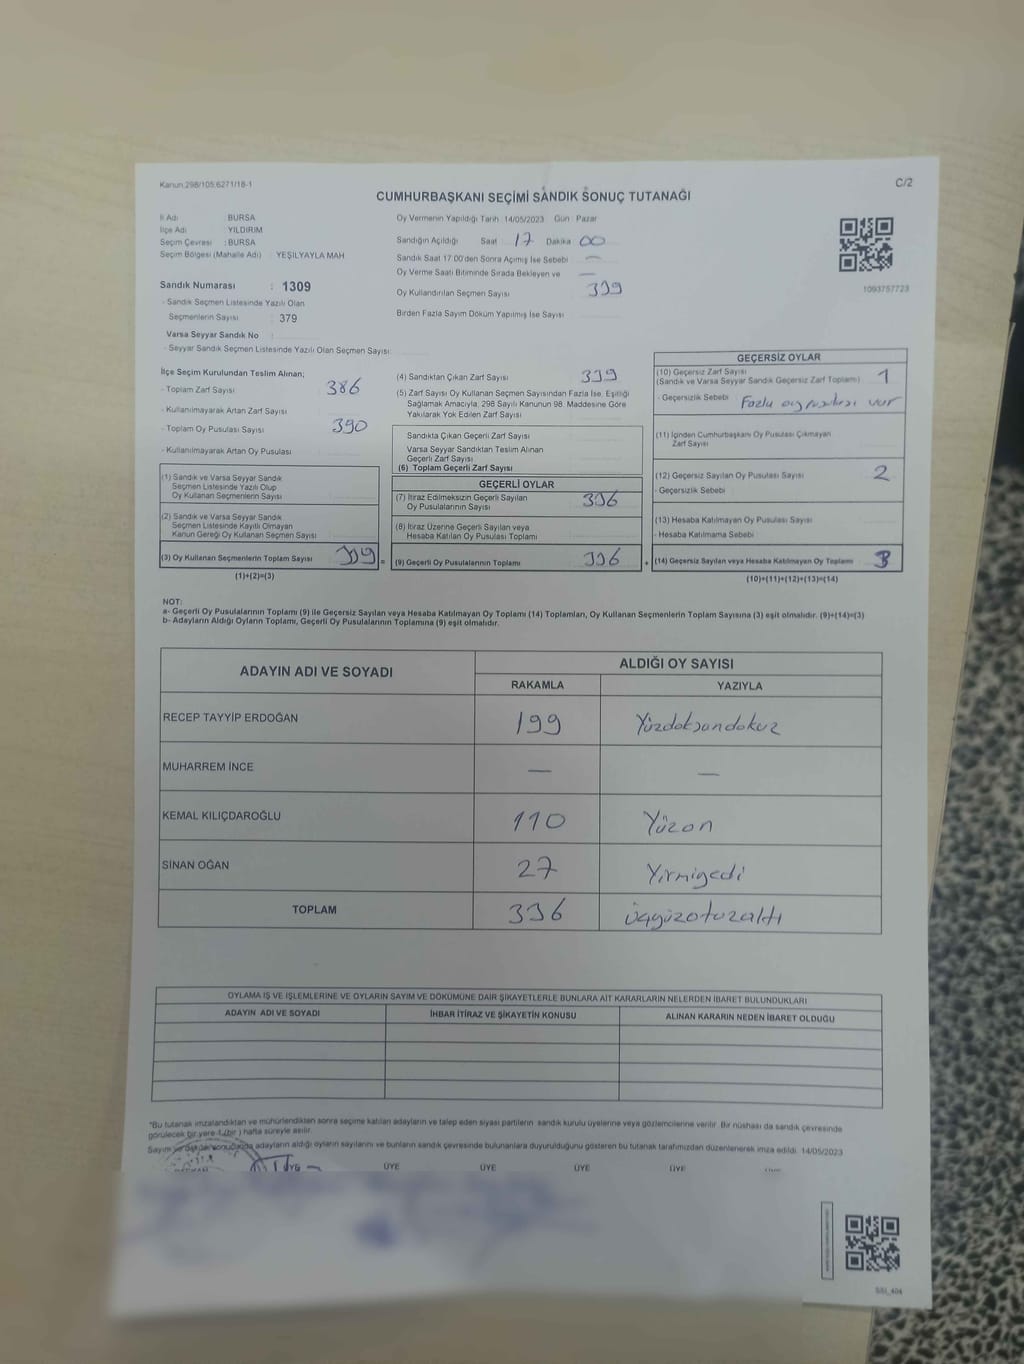 Kanun;298/105;6271/18-1
C/2
CUMHURBAŞKANI SEÇİMİ SANDIK SONUÇ TUTANAĞI
İl Adı : BURSA
İlçe Adı : YILDIRIM
Seçim Çevresi : BURSA
Seçim Bölgesi (Mahalle Adı) : YEŞİLYAYLA MAH
Sandık Numarası : 1309
- Sandık Seçmen Listesinde Yazılı Olan
Seçmenlerin Sayısı : 379
Varsa Seyyar Sandık No :
- Seyyar Sandık Seçmen Listesinde Yazılı Olan Seçmen Sayısı
Oy Vermenin Yapıldığı Tarih 14/05/2023 Gün : Pazar
Sandığın Açıldığı Saat 17 Dakika 00
Sandık Saat 17.00'den Sonra Açılmış İse Sebebi —
Oy Verme Saati Bitiminde Sırada Bekleyen ve —
Oy Kullandırılan Seçmen Sayısı 339
Birden Fazla Sayım Döküm Yapılmış İse Sayısı
1093757723
İlçe Seçim Kurulundan Teslim Alınan;
- Toplam Zarf Sayısı 386
- Kullanılmayarak Artan Zarf Sayısı
- Toplam Oy Pusulası Sayısı 390
- Kullanılmayarak Artan Oy Pusulası
(1) Sandık ve Varsa Seyyar Sandık
Seçmen Listesinde Yazılı Olup
Oy Kullanan Seçmenlerin Sayısı
(2) Sandık ve Varsa Seyyar Sandık
Seçmen Listesinde Kayıtlı Olmayan
Kanun Gereği Oy Kullanan Seçmen Sayısı
(3) Oy Kullanan Seçmenlerin Toplam Sayısı 339 =
(1)+(2)=(3)
(4) Sandıktan Çıkan Zarf Sayısı 339
(5) Zarf Sayısı Oy Kullanan Seçmen Sayısından Fazla İse, Eşitliği
Sağlamak Amacıyla, 298 Sayılı Kanunun 98. Maddesine Göre
Yakılarak Yok Edilen Zarf Sayısı
Sandıkta Çıkan Geçerli Zarf Sayısı
Varsa Seyyar Sandıktan Teslim Alınan
Geçerli Zarf Sayısı
(6) Toplam Geçerli Zarf Sayısı
GEÇERLİ OYLAR
(7) İtiraz Edilmeksizin Geçerli Sayılan
Oy Pusulalarının Sayısı 336
(8) İtiraz Üzerine Geçerli Sayılan veya
Hesaba Katılan Oy Pusulası Toplamı
(9) Geçerli Oy Pusulalarının Toplamı 336 +
GEÇERSİZ OYLAR
(10) Geçersiz Zarf Sayısı
(Sandık ve Varsa Seyyar Sandık Geçersiz Zarf Toplamı) 1
- Geçersizlik Sebebi Fazla oy pusulası var
(11) İçinden Cumhurbaşkanı Oy Pusulası Çıkmayan
Zarf Sayısı
(12) Geçersiz Sayılan Oy Pusulası Sayısı 2
- Geçersizlik Sebebi
(13) Hesaba Katılmayan Oy Pusulası Sayısı
- Hesaba Katılmama Sebebi
(14) Geçersiz Sayılan veya Hesaba Katılmayan Oy Toplamı 3
(10)+(11)+(12)+(13)=(14)
NOT:
a- Geçerli Oy Pusulalarının Toplamı (9) ile Geçersiz Sayılan veya Hesaba Katılmayan Oy Toplamı (14) Toplamları, Oy Kullanan Seçmenlerin Toplam Sayısına (3) eşit olmalıdır. (9)+(14)=(3)
b- Adayların Aldığı Oyların Toplamı, Geçerli Oy Pusulalarının Toplamına (9) eşit olmalıdır.
ADAYIN ADI VE SOYADI ALDIĞI OY SAYISI
RAKAMLA YAZIYLA
RECEP TAYYİP ERDOĞAN 199 Yüzdoksandokuz
MUHARREM İNCE — —
KEMAL KILIÇDAROĞLU 110 Yüzon
SİNAN OĞAN 27 Yirmiyedi
TOPLAM 336 üçyüzotuzaltı
OYLAMA İŞ VE İŞLEMLERİNE VE OYLARIN SAYIM VE DÖKÜMÜNE DAİR ŞİKAYETLERLE BUNLARA AİT KARARLARIN NELERDEN İBARET BULUNDUKLARI
ADAYIN ADI VE SOYADI İHBAR İTİRAZ VE ŞİKAYETİN KONUSU ALINAN KARARIN NEDEN İBARET OLDUĞU
"Bu tutanak imzalandıktan ve mühürlendikten sonra seçime katılan adayların ve talep eden siyasi partilerin sandık kurulu üyelerine veya gözlemcilerine verilir. Bir nüshası da sandık çevresinde
görülecek bir yere 1 (bir) hafta süreyle asılır.
Sayım ve döküm sonucunda adayların aldığı oyların sayılarını ve bunların sandık çevresinde bulunanlara duyurulduğunu gösteren bu tutanak tarafımızdan düzenlenerek imza edildi. 14/05/2023
ÜYE ÜYE ÜYE ÜYE